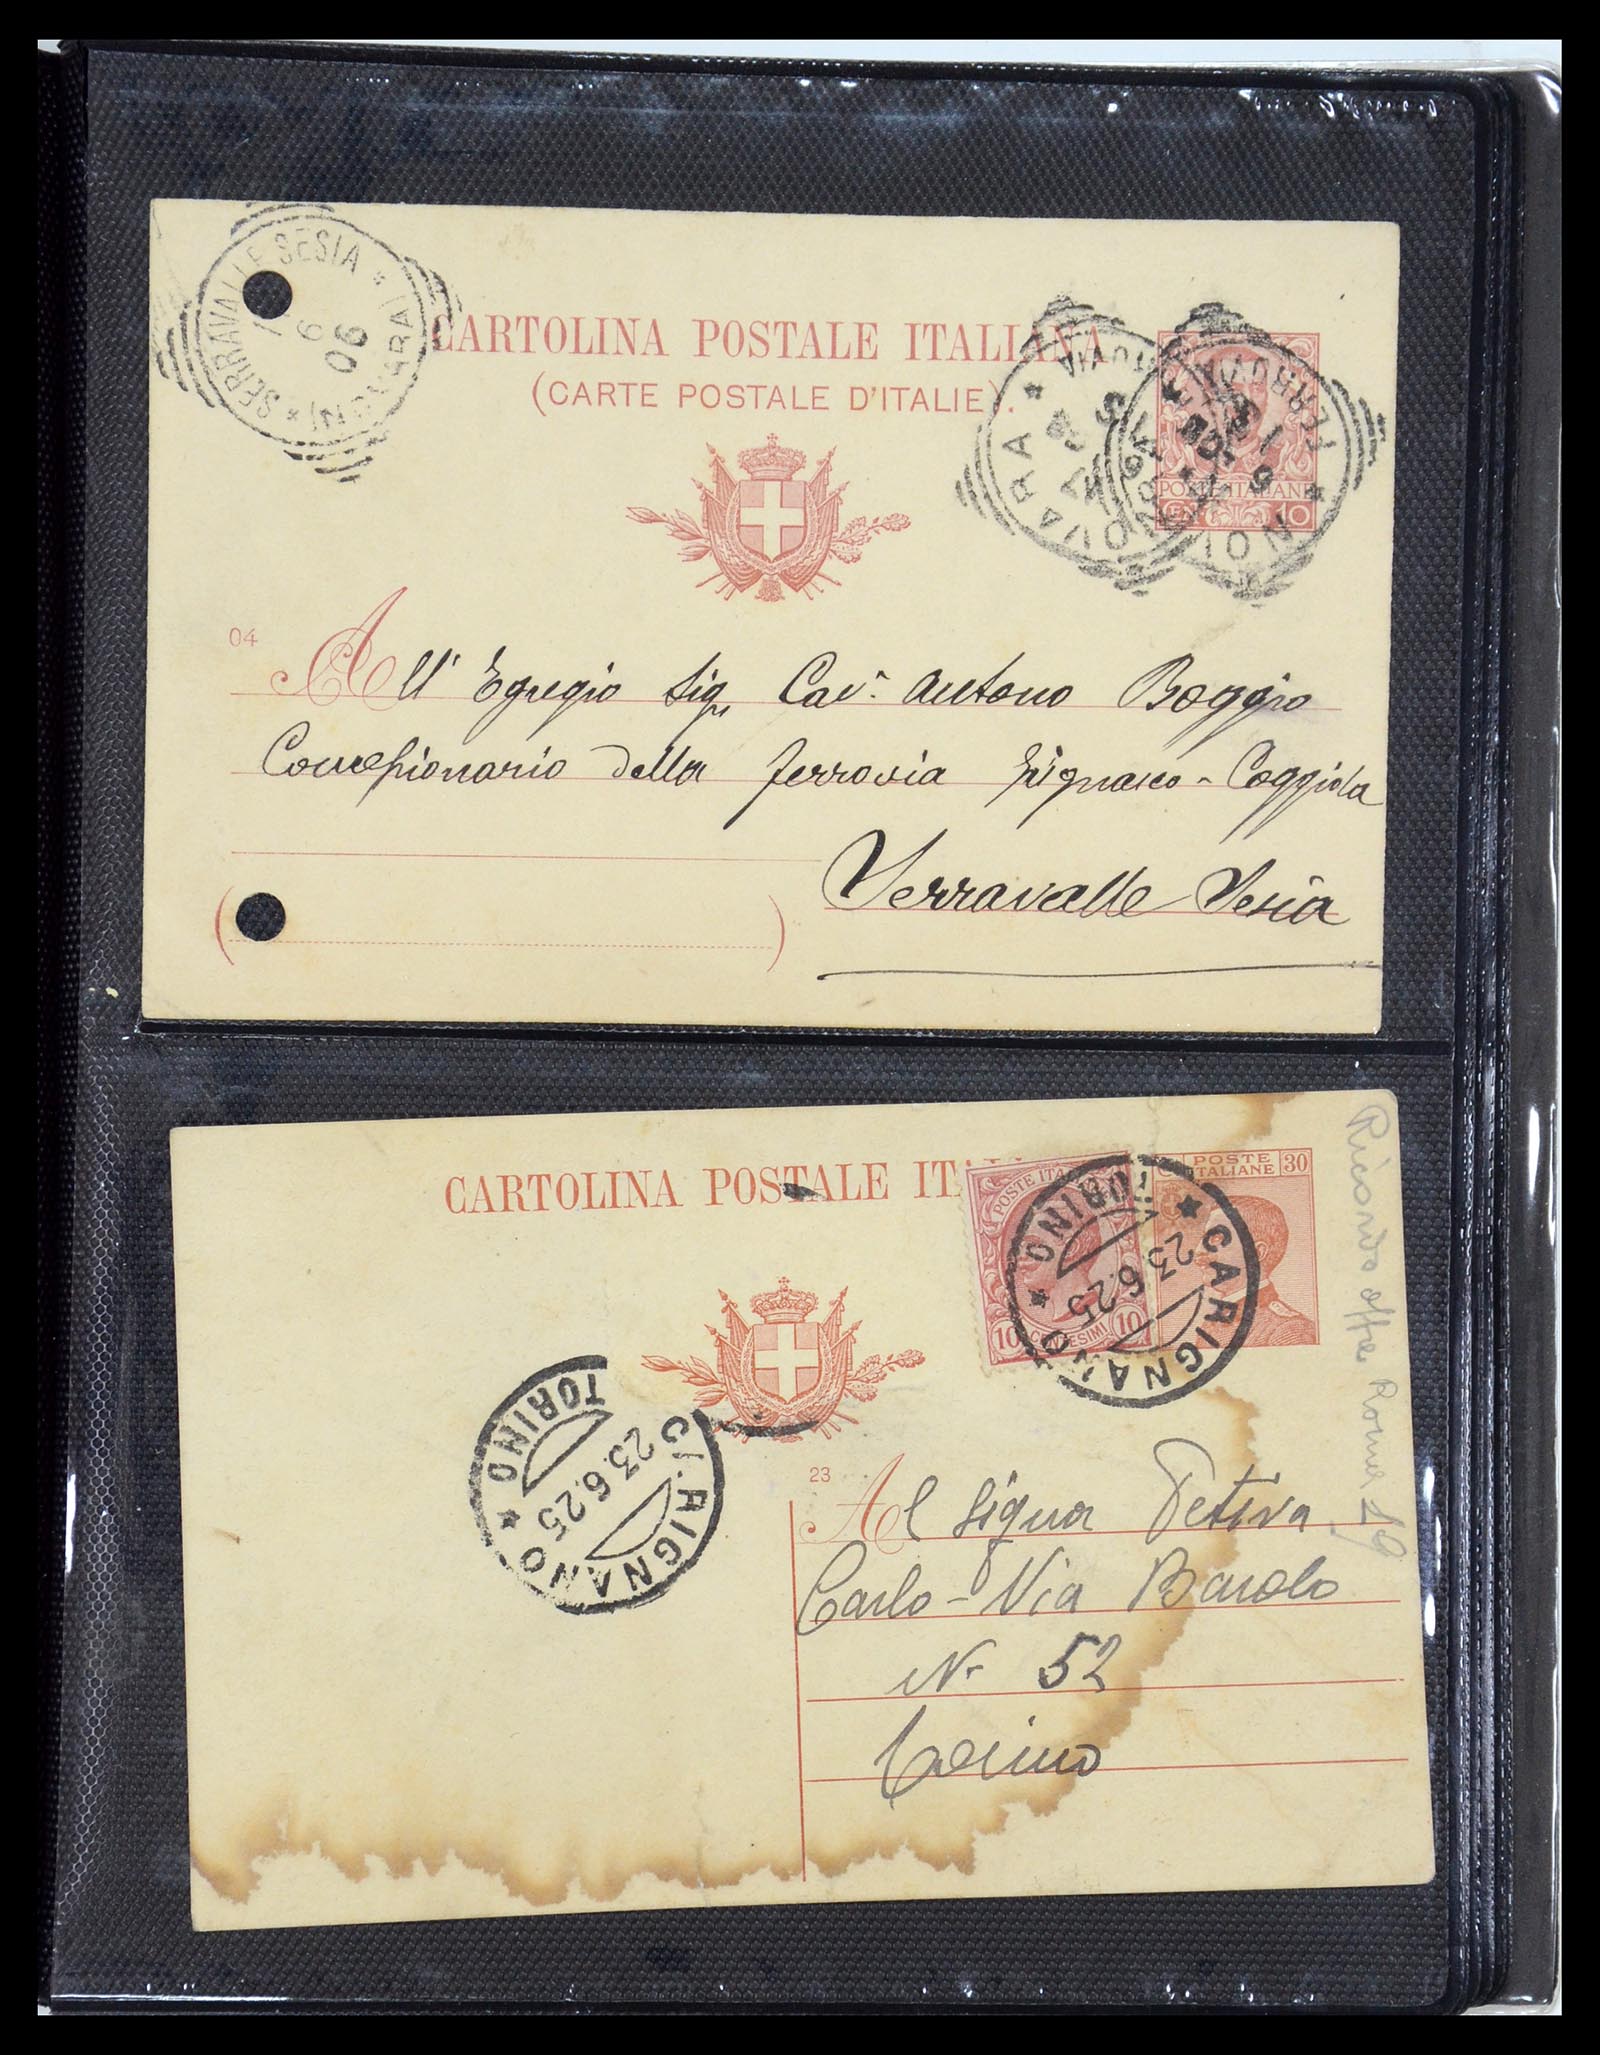 SERRAVALLE SESIA * (NOVARA) *
6
06
CARTOLINA POSTALE ITALIANA
(CARTE POSTALE D'ITALIE).
NOVARA * FERROVIA *
NOVARA * FERROVIA *
POSTE ITALIANE
CEN 10
04
All' Egregio Sig. Cav. Antonio Boggio
Concessionario della ferrovia Grignasco - Coggiola
Serravalle Sesia
CARTOLINA POSTALE IT
POSTE ITALIANE
10 CENTESIMI 10
POSTE ITALIANE 30
CARIGNANO * TORINO *
23.6.25
CARIGNANO * TORINO *
23.6.25
23
Al Signor Petiva
Carlo - Via Barolo
N. 52
Torino
Ricordo Roma 19